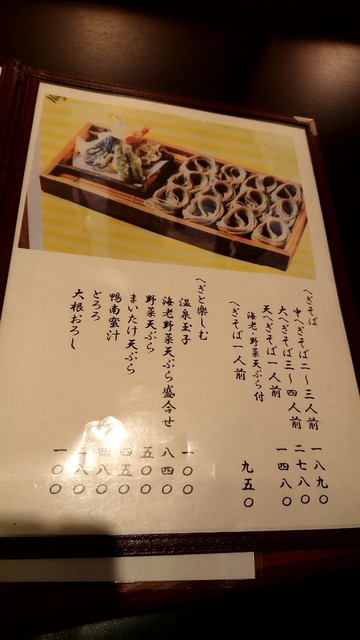 へぎそば
中へぎそば二〜三人前 一八九〇
大へぎそば三〜四人前 二七八〇
天へぎそば一人前 一四八〇
海老・野菜天ぷら付
へぎそば一人前 九五〇
へぎと楽しむ
温泉玉子 一〇〇
海老野菜天ぷら盛合せ 八四〇
野菜天ぷら 五〇〇
まいたけ天ぷら 四五〇
鴨南蜜汁 四八〇
とろろ
大根おろし 一〇〇